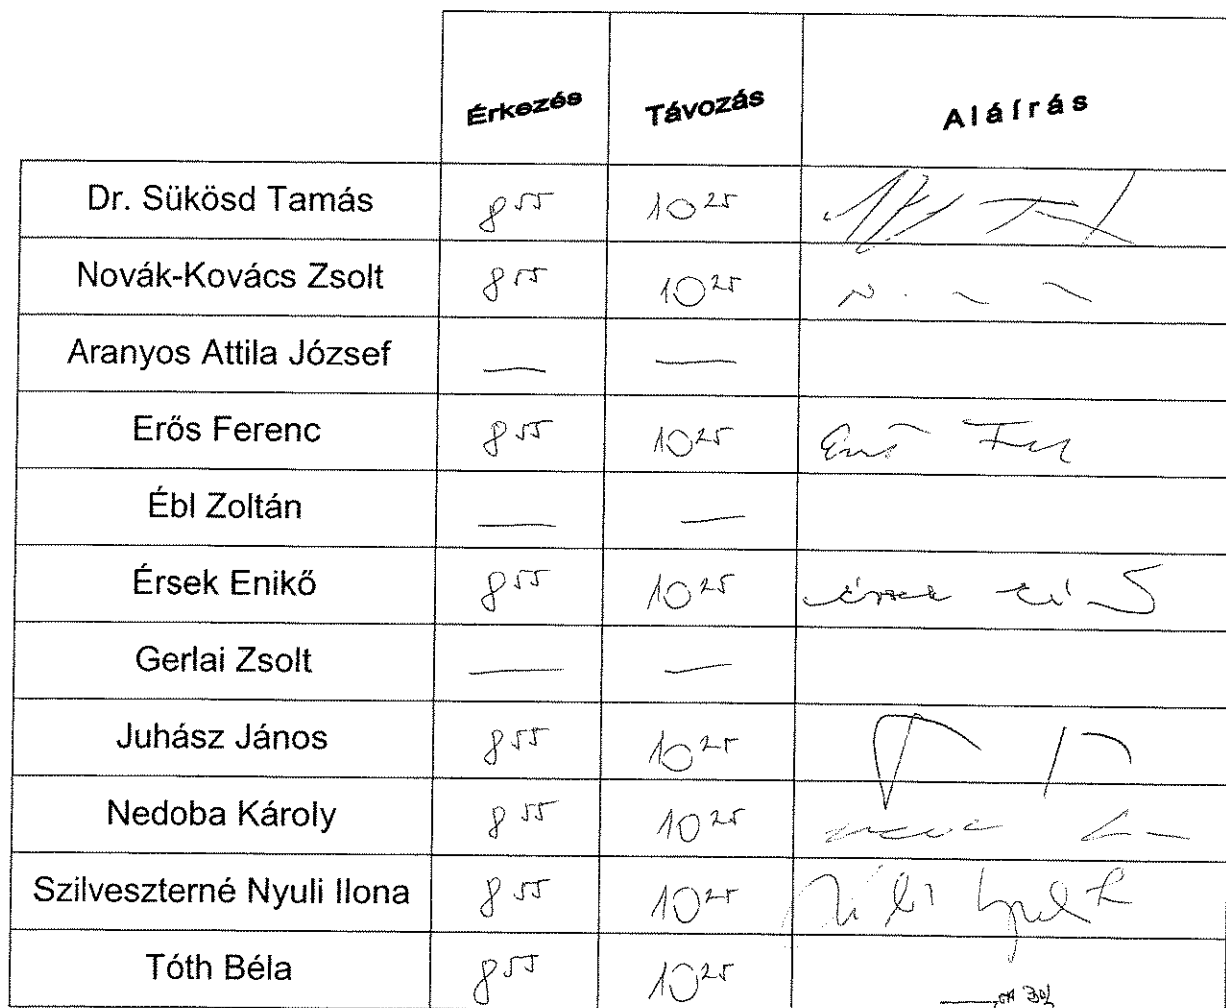 Érkezés Távozás Aláírás
Dr. Sükösd Tamás 8 55 10 25
Novák-Kovács Zsolt 8 55 10 25
Aranyos Attila József — —
Erős Ferenc 8 55 10 25
Ébl Zoltán — —
Érsek Enikő 8 55 10 25
Gerlai Zsolt — —
Juhász János 8 55 10 25
Nedoba Károly 8 55 10 25
Szilveszterné Nyuli Ilona 8 55 10 25
Tóth Béla 8 55 10 25